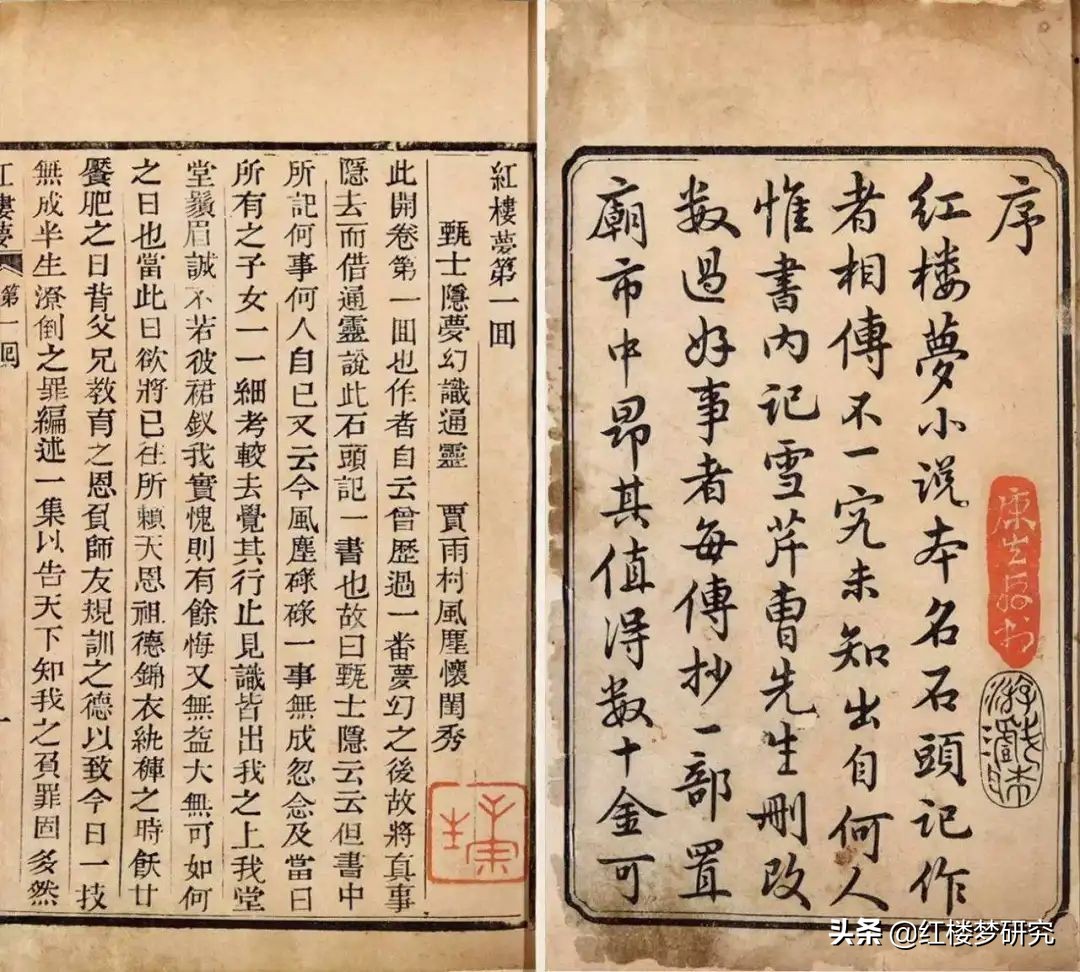 序
红楼夢小说本名石頭记作
者相傳不一究未知出自何人
惟書内记雪芹曹先生刪改
数過好事者每傳抄一部置
廟市中昂其值得数十金可
紅樓夢第一囬
甄士隱夢幻識通靈　賈雨村風塵懷閨秀
此開卷第一囬也作者自云曾歷過一番夢幻之後故將真事
隱去而借通靈說此石頭記一書也故曰甄士隱云云但書中
所記何事何人自已又云今風塵碌碌一事無成忽念及當日
所有之子女一一細考較去覺其行止見識皆出我之上我堂
堂鬚眉誠不若彼裙釵我實愧則有餘悔又無益大無可如何
之日也當此日欲將已徃所賴天恩祖德錦衣紈褲之時飫甘
饜肥之日背父兄教育之恩負師友規訓之德以致今日一技
無成半生潦倒之罪編述一集以告天下知我之負罪固多然
紅樓夢 第一囘 一
康生
头条 @红楼梦研究